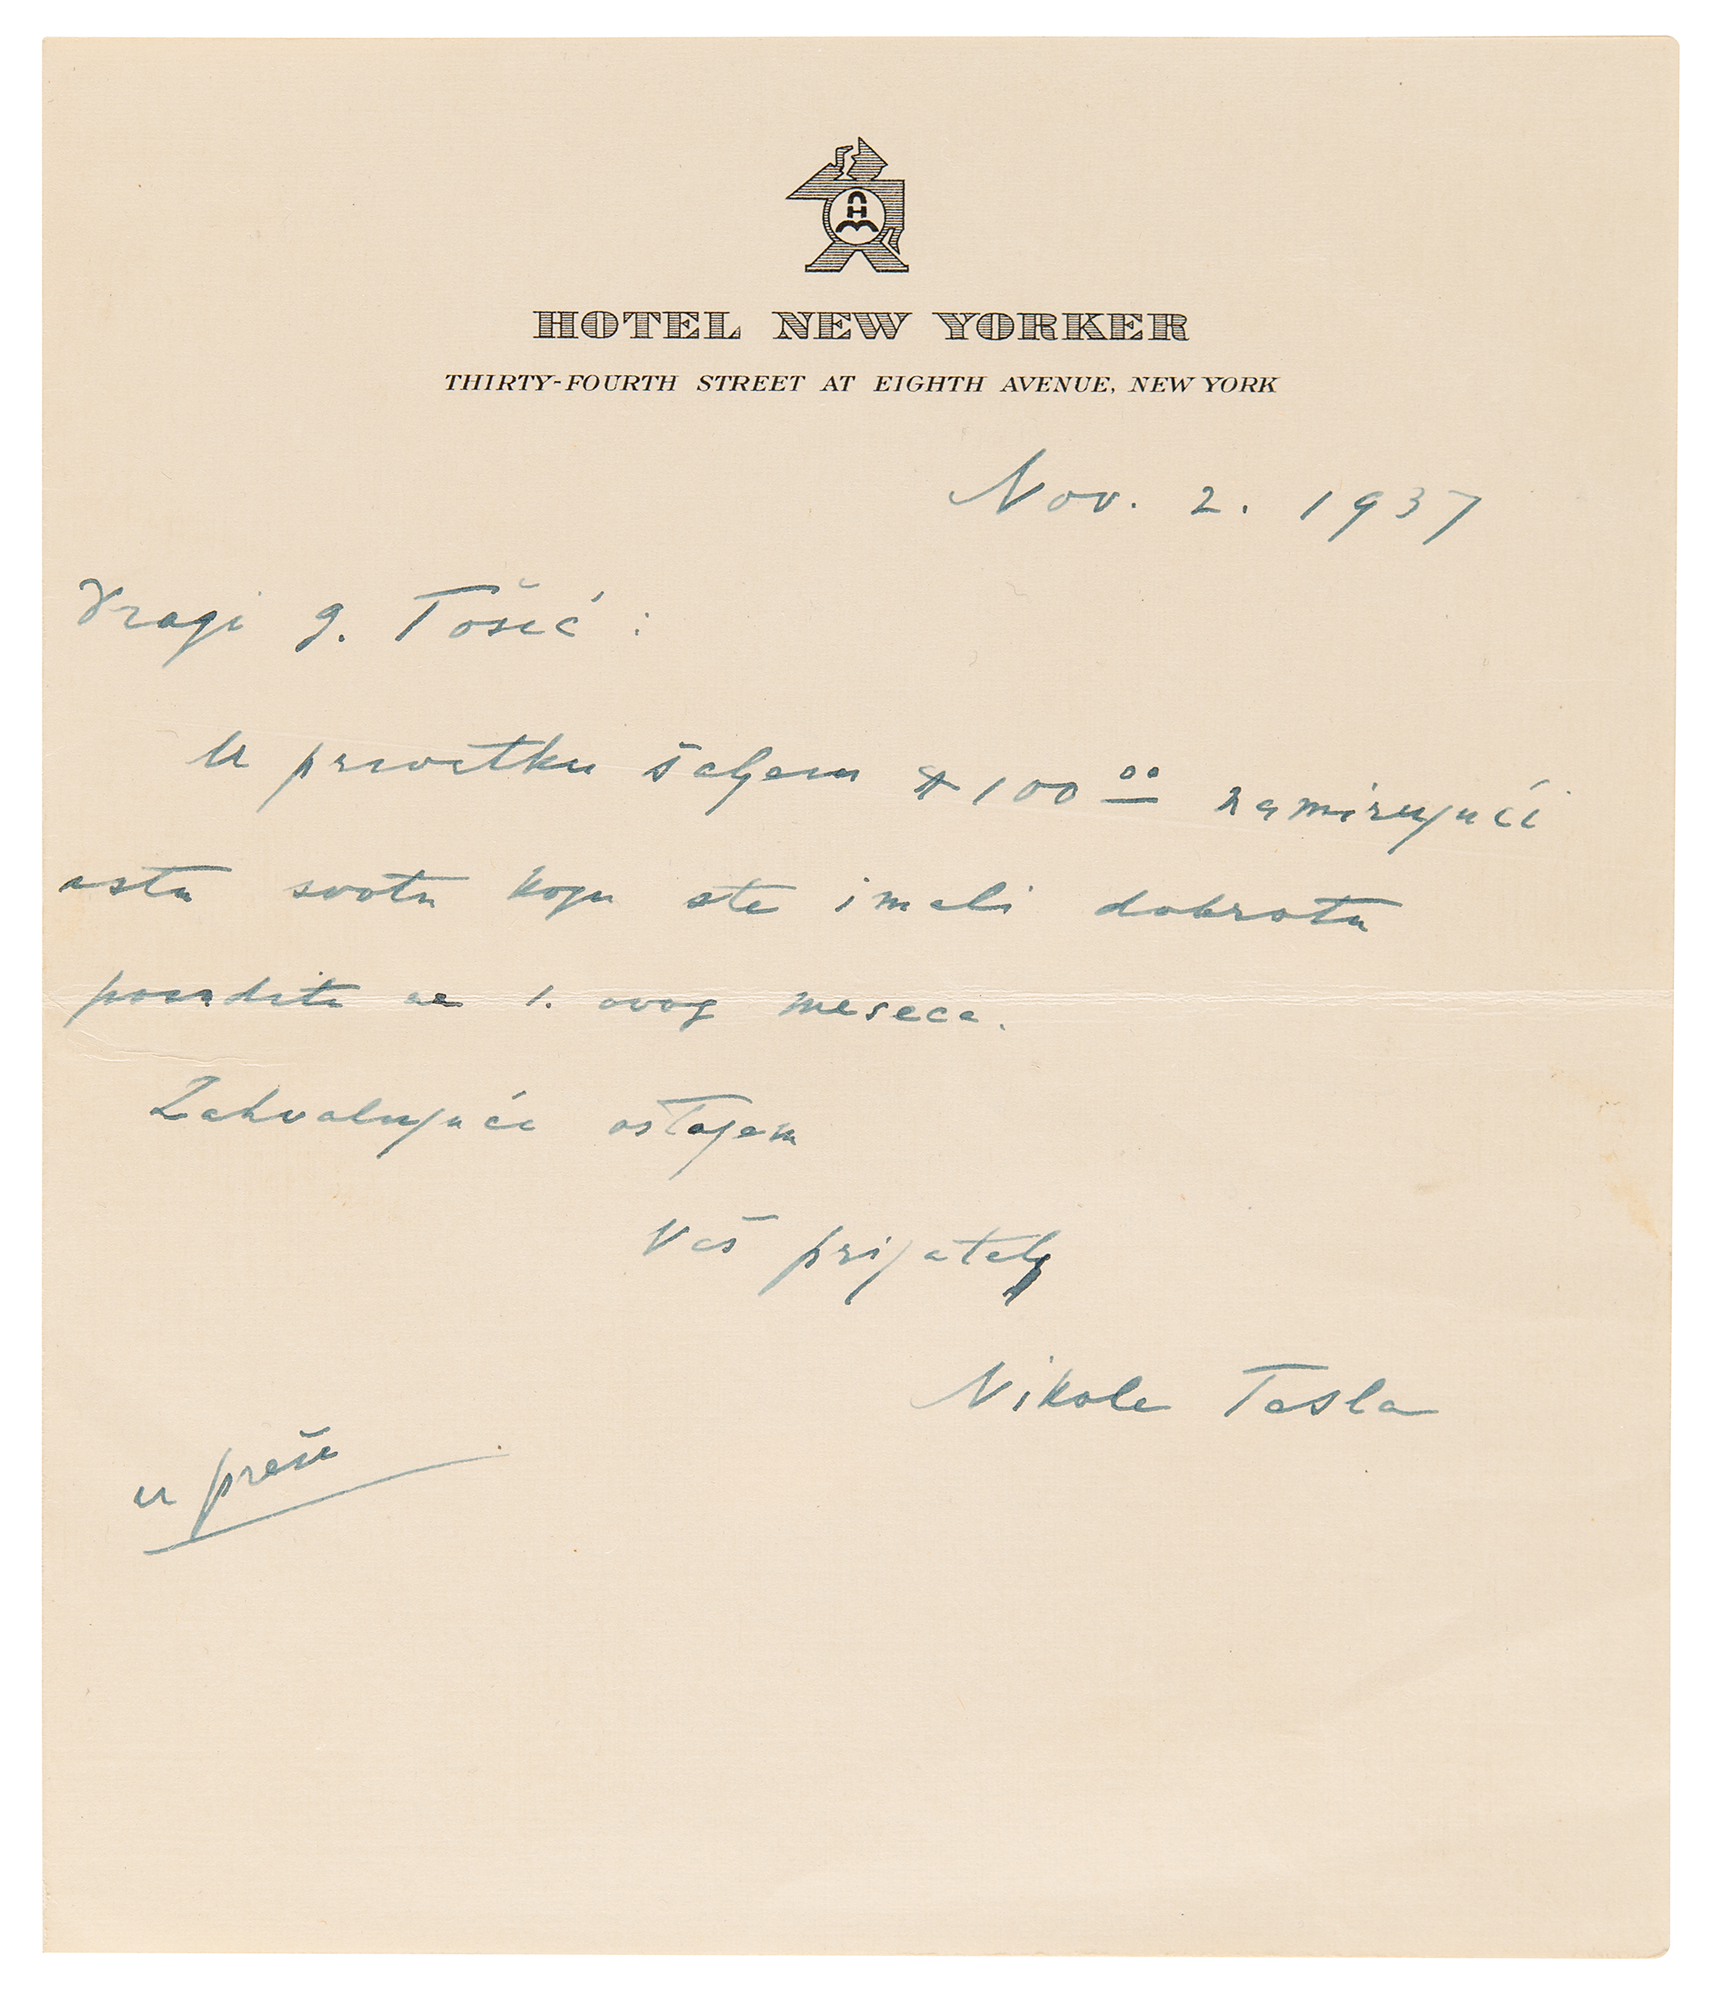 HOTEL NEW YORKER
THIRTY-FOURTH STREET AT EIGHTH AVENUE, NEW YORK
Nov. 2. 1937
Dragi g. Tošić:
U privitku šaljem $100 00 namirujući
istu svotu koju ste imali dobrotu
posuditi me 1. ovog meseca.
Zahvalujući ostajem
Vaš prijatelj
Nikola Tesla
u preši